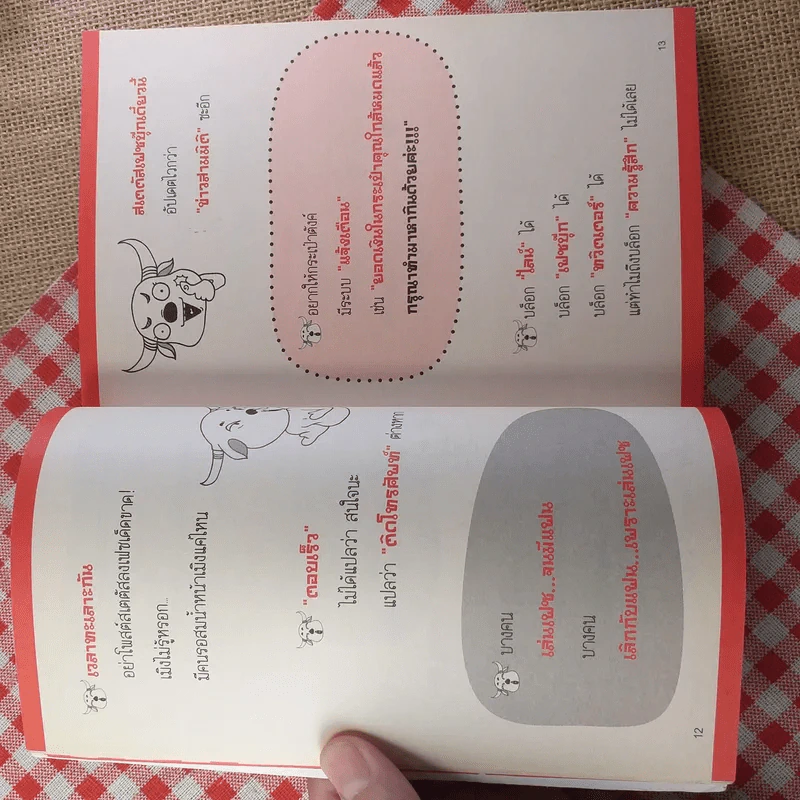 เวลาทะเลาะกัน
อย่าโพสต์สเตตัสลงเฟซเด็ดขาด!
เมิงไม่รู้หรอก...
มีคนรอสมน้ำหน้าเมิงแค่ไหน
"ตอบเร็ว"
ไม่ได้แปลว่า สนใจนะ
แปลว่า "ติดโทรศัพท์" ต่างหาก
บางคน
เล่นเฟซ...จนมีแฟน
บางคน
เลิกกับแฟน...เพราะเล่นเฟซ
12
สเตตัสเฟซบุ๊กเดี๋ยวนี้
อัปเดตไวกว่า
"ข่าวสามมิติ" ซะอีก
อยากให้กระเป๋าตังค์
มีระบบ "แจ้งเตือน"
เช่น "ยอดเงินในกระเป๋าคุณใกล้หมดแล้ว
กรุณาทำมาหากินด้วยค่ะ!!!"
บล็อก "ไลน์" ได้
บล็อก "เฟซบุ๊ก" ได้
บล็อก "ทวิตเตอร์" ได้
แต่ทำไมถึงบล็อก "ความรู้สึก" ไม่ได้เลย
13